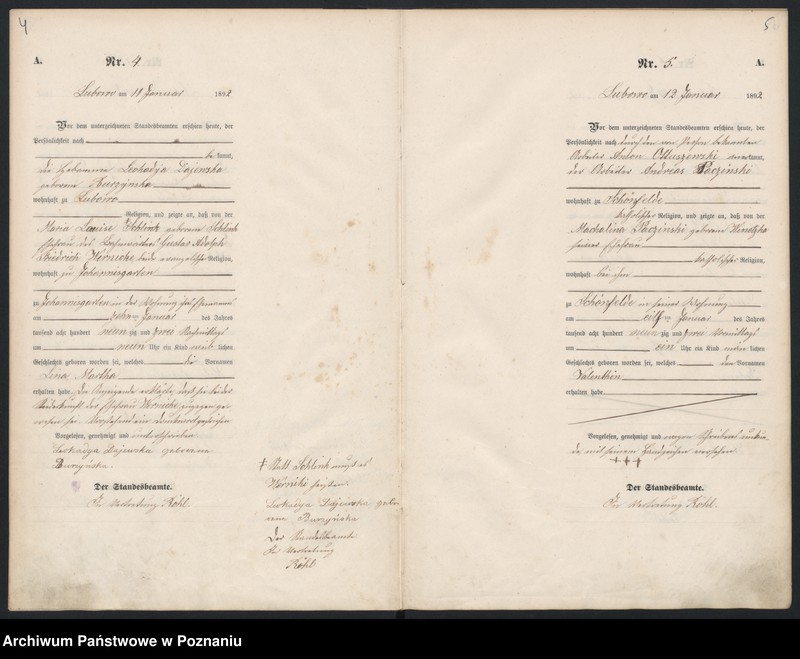 4
A.
Nr. 4
Lubowo am 11 Januar 1892
Vor dem unterzeichneten Standesbeamten erschien heute, der
Persönlichkeit nach
be kannt,
die Hebamme Leokadya Dajewska
geborene Burzyńska
wohnhaft zu Lubowo
Religion, und zeigte an, daß von der
Maria Louise Schlink geborenen Schlink
Ehefrau des Gustav Adolph
Friedrich Wernicke beide evangelischer Religion,
wohnhaft zu Johannisgarten
zu Johannisgarten in der Wohnung
am zehn ten Januar des Jahres
tausend acht hundert neun zig und zwei Nachmittags
um neun Uhr ein Kind weib lichen
Geschlechts geboren worden sei, welches die Vornamen
Lina Martha
erhalten habe. Die Anzeigende erklärte, daß sie bei der
Niederkunft der Ehefrau Wernicke zugegen ge-
wesen sei.
Vorgelesen, genehmigt und unterschrieben
Leokadya Dajewska geborene
Burzyńska.
Der Standesbeamte.
In Vertretung Röhl.
† Statt Schlink muß es
Wernicke heißen.
Leokadya Dajewska gebo-
rene Burzyńska
Der Standesbeamte
In Vertretung
Röhl.
5
Nr. 5.
A.
Lubowo am 12 Januar 1892
Vor dem unterzeichneten Standesbeamten erschien heute, der
Persönlichkeit nach durch den von Person bekannten
Arbeiter Anton anerkannt,
der Arbeiter Andreas Paczinski
wohnhaft zu Schönfelde
katholischer Religion, und zeigte an, daß von der
Machalina Paczinski geborenen
seiner Ehefrau
katholischer Religion,
wohnhaft bei ihm
zu Schönfelde in seiner Wohnung
am eilf ten Januar des Jahres
tausend acht hundert neun zig und zwei Vormittags
um ein Uhr ein Kind männ lichen
Geschlechts geboren worden sei, welches den Vornamen
Valenthin
erhalten habe.
Vorgelesen, genehmigt und wegen Schreibensunkun-
de mit seinem Handzeichen versehen.
+++
Der Standesbeamte.
In Vertretung Röhl.
Archiwum Państwowe w Poznaniu